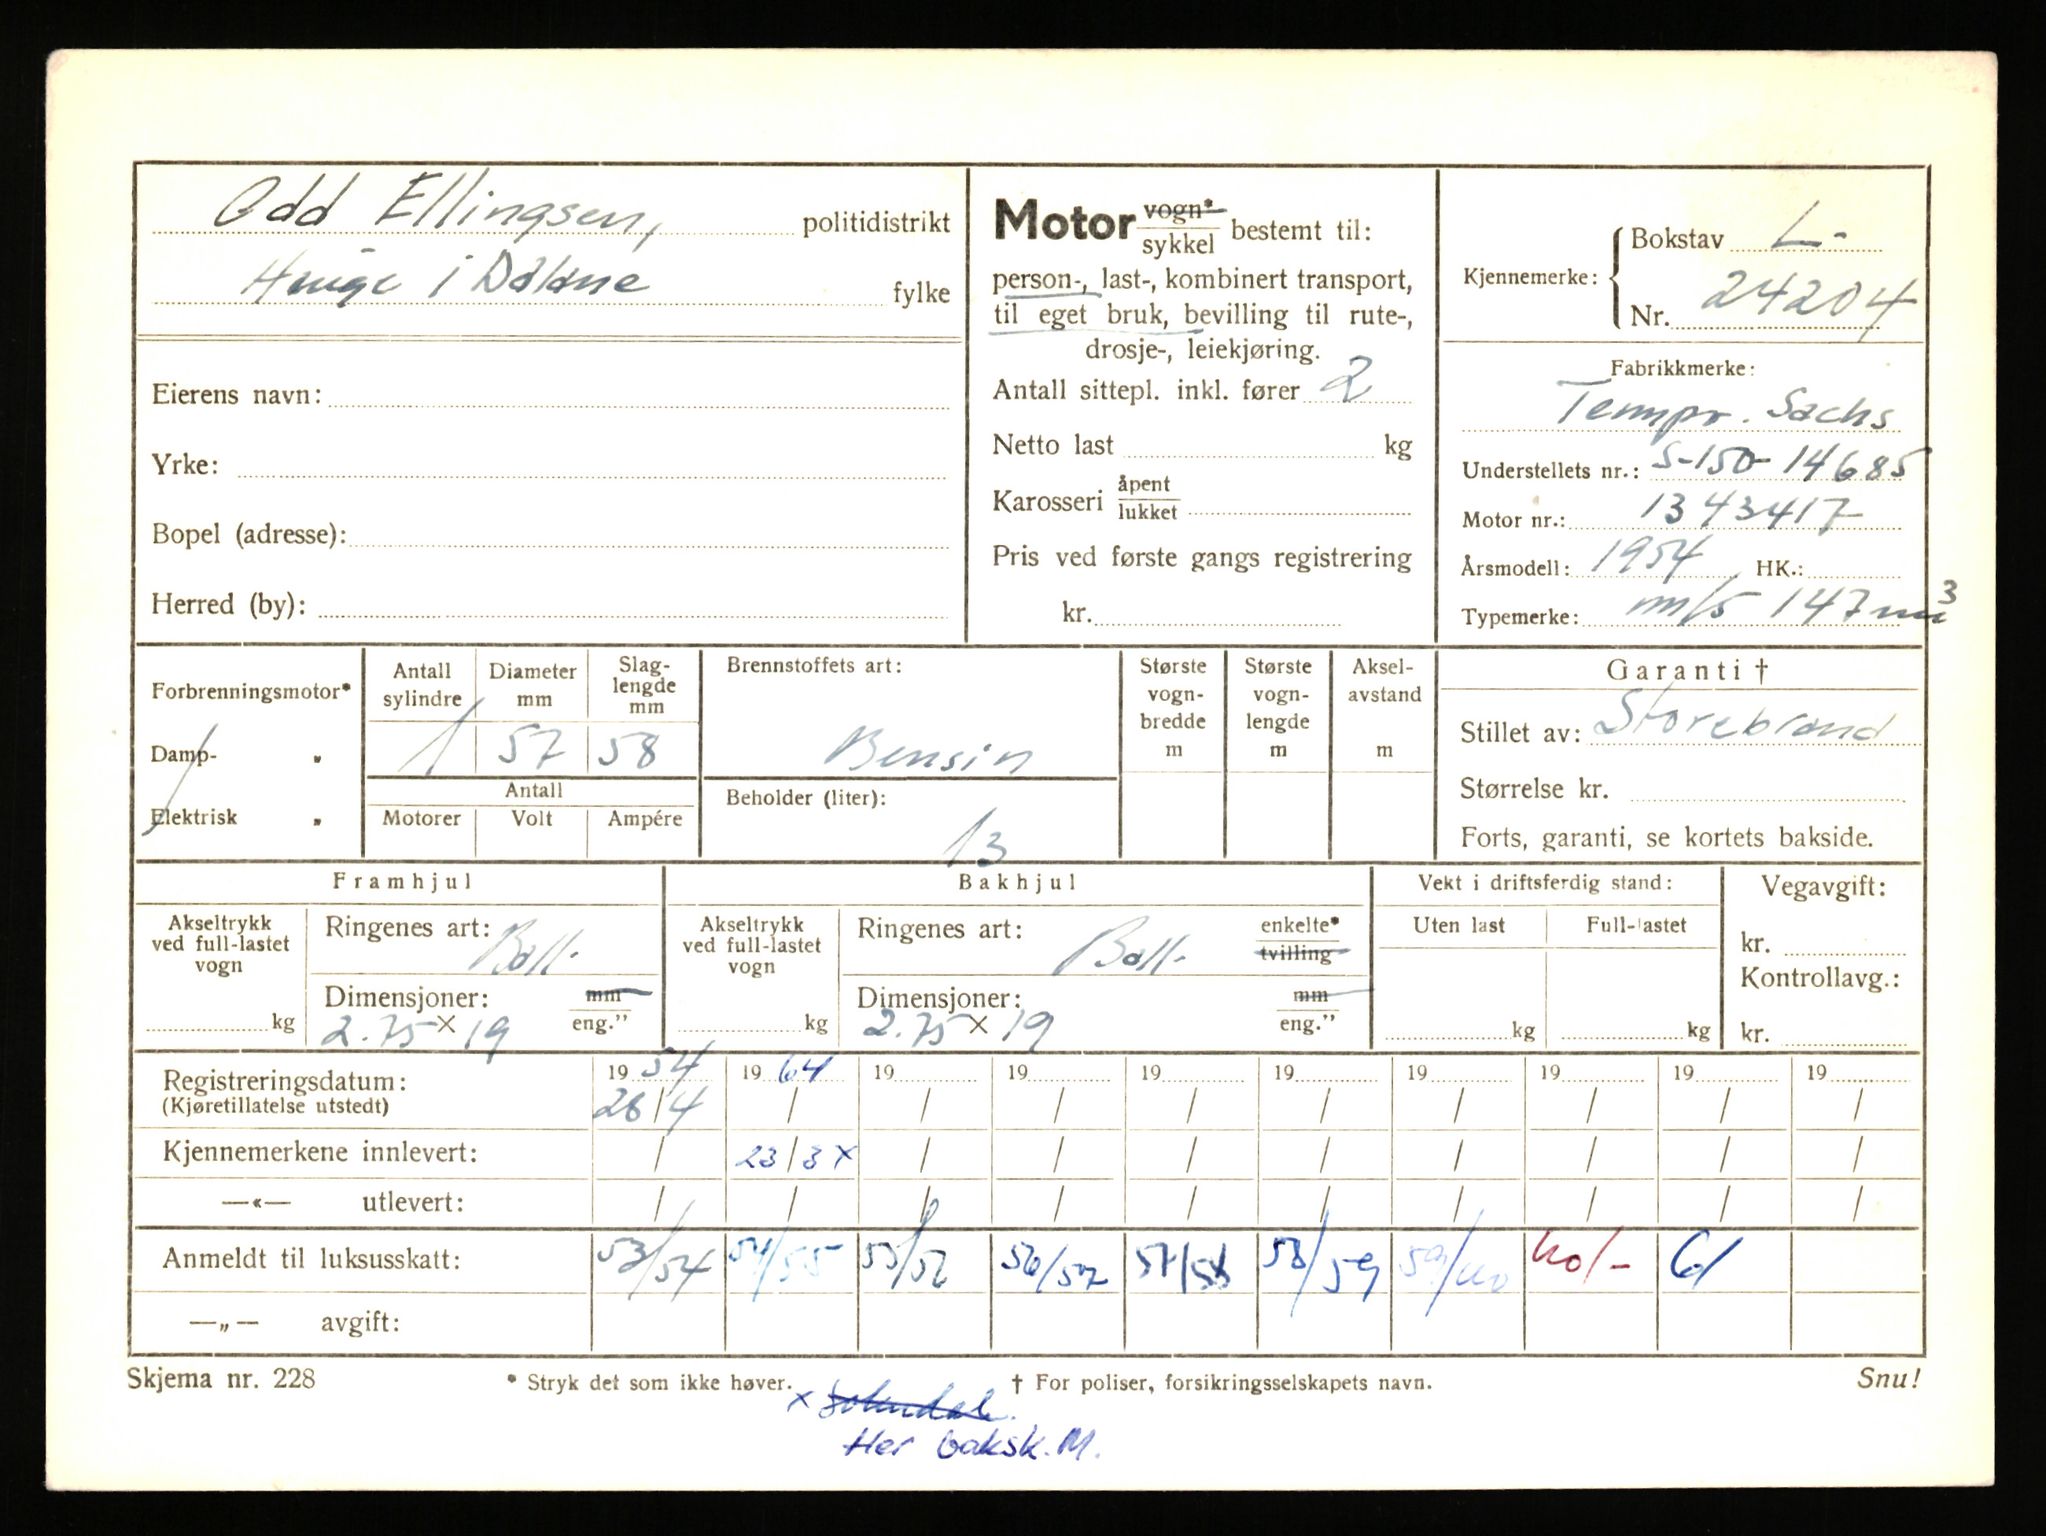 Odd Ellingsen, politidistrikt
Hauge i Dalane fylke
Eierens navn:
Yrke:
Bopel (adresse):
Herred (by):
Motor vogn* sykkel bestemt til:
person-, last-, kombinert transport,
til eget bruk, bevilling til rute-,
drosje-, leiekjøring.
Antall sittepl. inkl. fører 2
Netto last kg
Karosseri åpent lukket
Pris ved første gangs registrering
kr.
Kjennemerke: Bokstav L-
Nr. 24204
Fabrikkmerke:
Tempo. Sachs
Understellets nr.: S-150-14685
Motor nr.: 1343417
Årsmodell: 1954 HK.:
Typemerke: m/5 147 m3
Forbrenningsmotor*
Damp- „
Elektrisk „
Antall sylindre
Diameter mm
Slag-lengde mm
1 57 58
Antall
Motorer Volt Ampére
Brennstoffets art:
Bensin
Beholder (liter):
13
Største vogn-bredde m
Største vogn-lengde m
Aksel-avstand m
Garanti †
Stillet av: Storebrand
Størrelse kr.
Forts, garanti, se kortets bakside.
Framhjul
Akseltrykk ved full-lastet vogn
kg
Ringenes art: Ball-
Dimensjoner: mm eng.”
2.75 × 19
Bakhjul
Akseltrykk ved full-lastet vogn
kg
Ringenes art: Ball- enkelte* tvilling
Dimensjoner: mm eng.”
2.75 × 19
Vekt i driftsferdig stand:
Uten last Full-lastet
kg kg
Vegavgift:
kr.
Kontrollavg.:
kr.
Registreringsdatum: 19 54 19 64 19 19 19 19 19 19 19 19
(Kjøretillatelse utstedt) 28/4 / / / / / / / / /
Kjennemerkene innlevert: / 23/3 x / / / / / / / /
—«— utlevert: / / / / / / / / / /
Anmeldt til luksusskatt: 53/54 54/55 55/56 56/57 57/58 58/59 59/60 60/- 61
—„— avgift:
Skjema nr. 228 * Stryk det som ikke høver. † For poliser, forsikringsselskapets navn. Snu!
x
Her baksk. M.